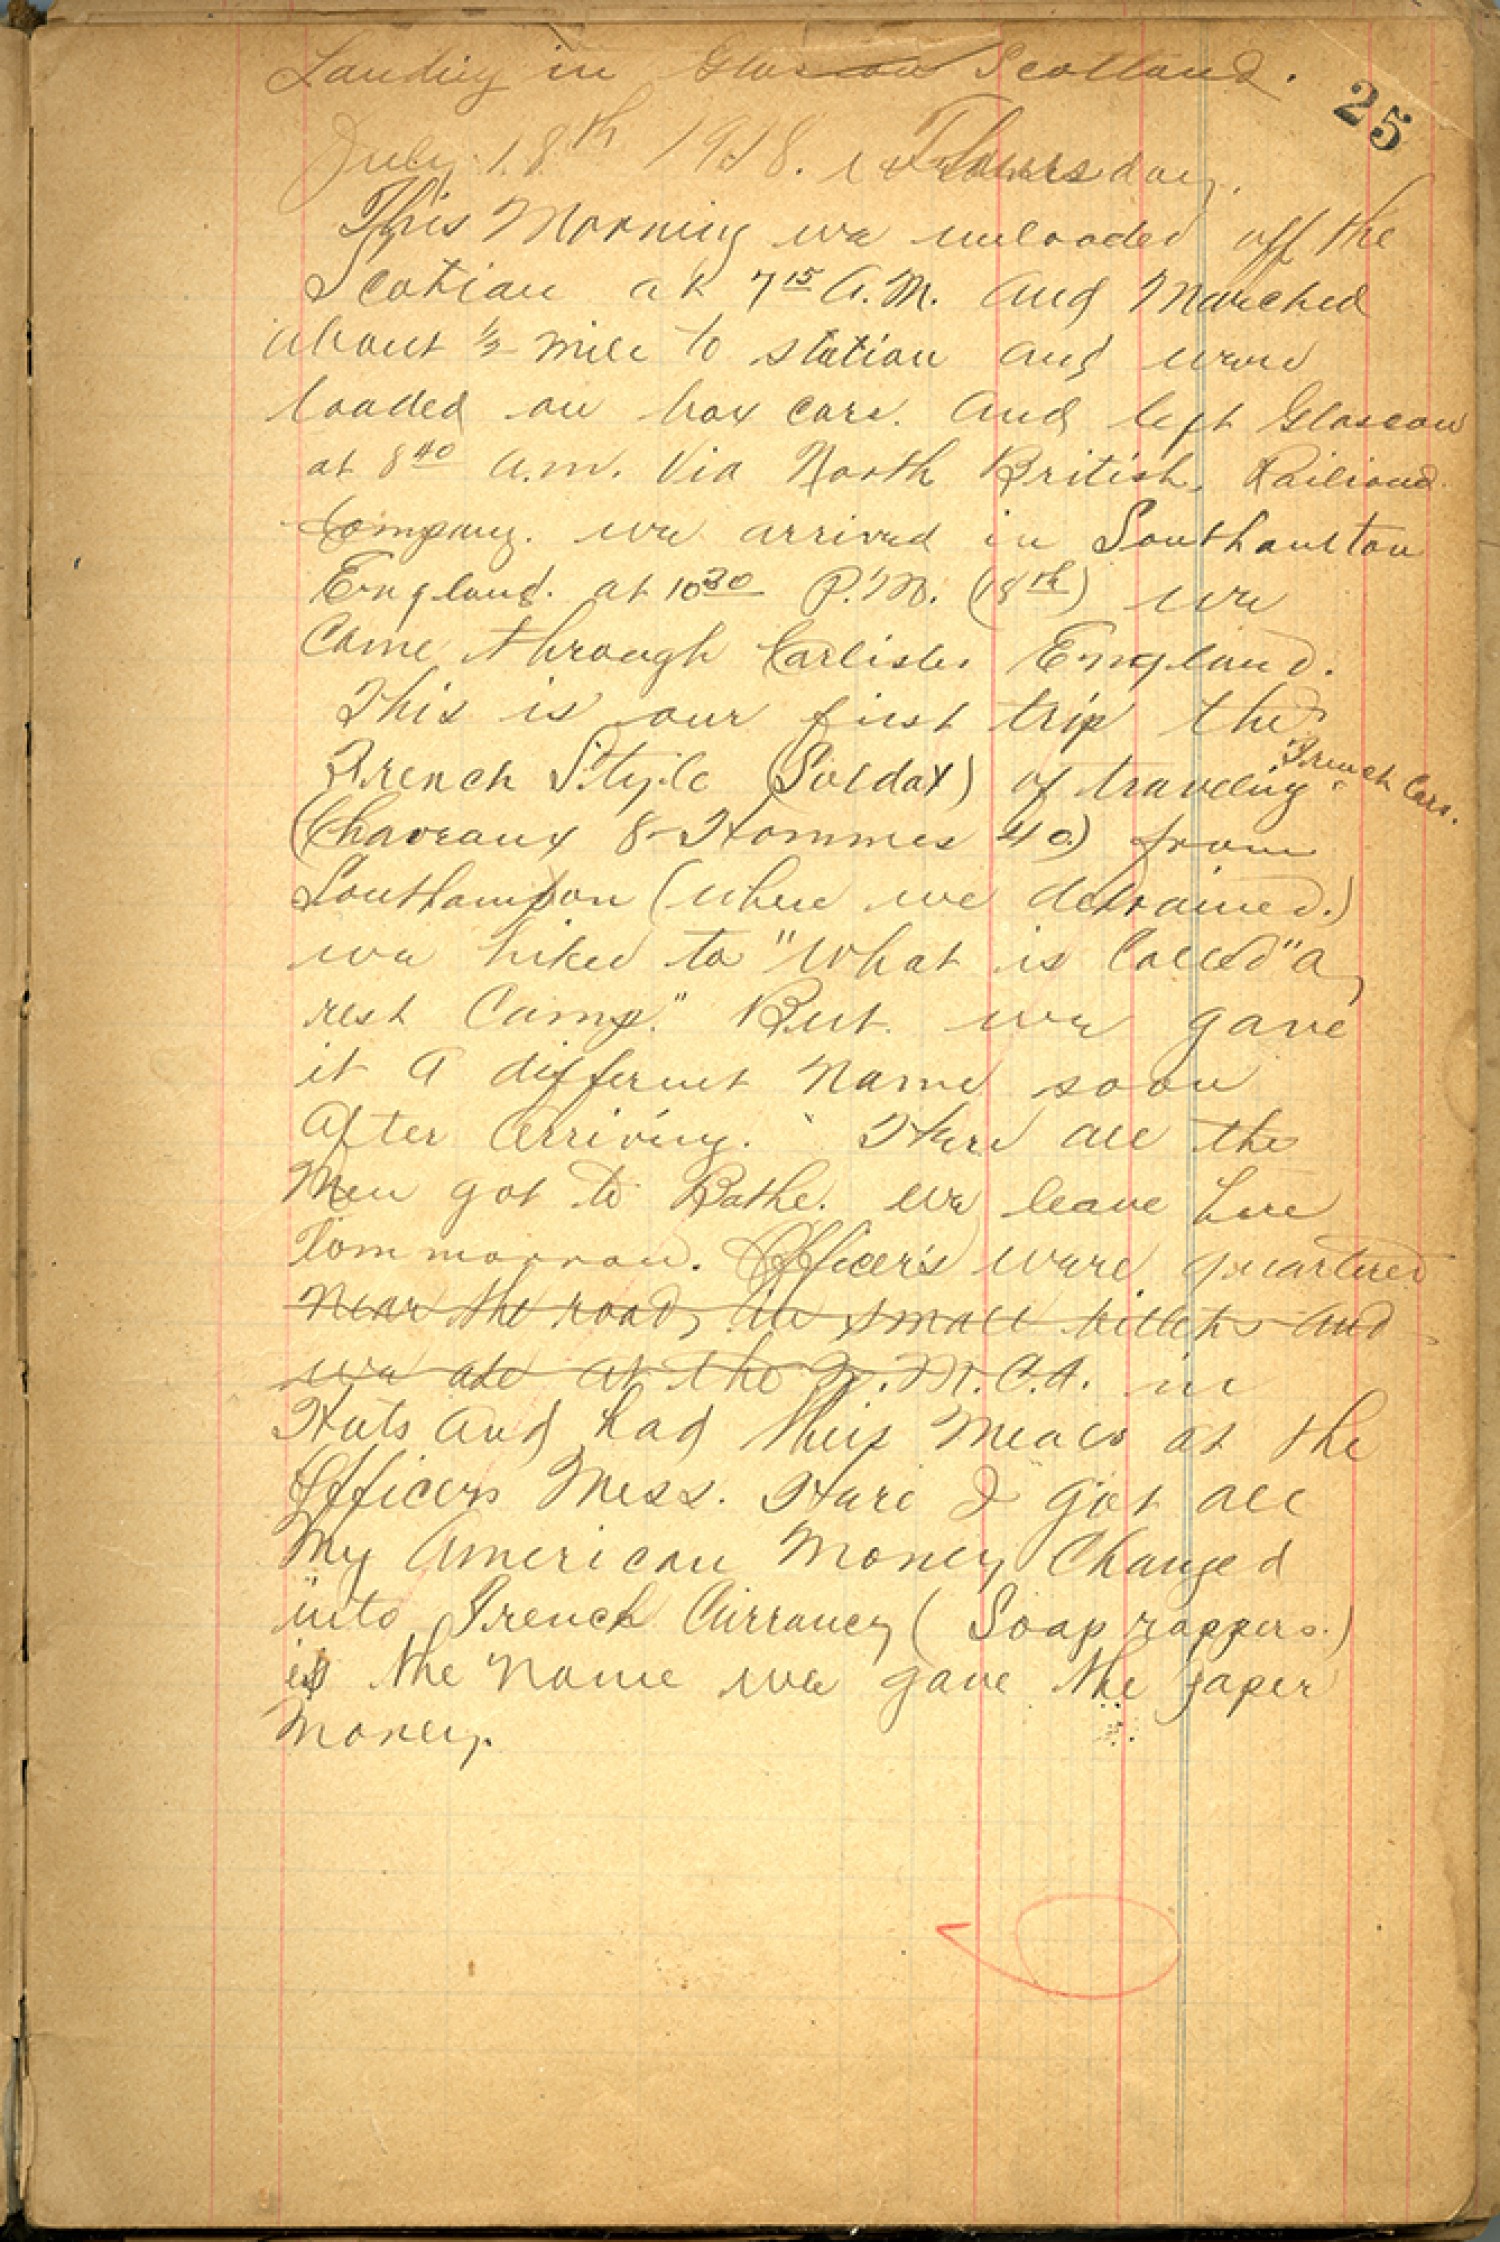 Landing in Glascow Scotland.
25
July 18th 1918. Thursday.
This Morning we unloaded off the
Scotian at 7 15 A.M. and Marched
about 1/2 mile to station and were
loaded on box cars. and left Glascow
at 8 40 a.m. Via North British, Railroad
Company. we arrived in Southamton
England. at 10 30 P.M. (18th) we
Came through Carlisle, England.
This is our first trip the
French Style (Soldat) of traveling French Cars.
(Chavraux 8-Hommes 40) from
Southampton (where we detrained.)
we hiked to "What is Called" a
rest Camp." But we gave
it a different Name soon
After Arriving. Here all the
Men got to Bathe. We leave here
Tommorrow. Officer's were quartered
Near the road, in small billets and
we ate at the Y.M.C.A. in
Huts and had their Meals at the
Officers Mess. Here I got all
My American Money Changed
into French Currancy (Soap rappers.)
is the Name we gave the paper
Money.